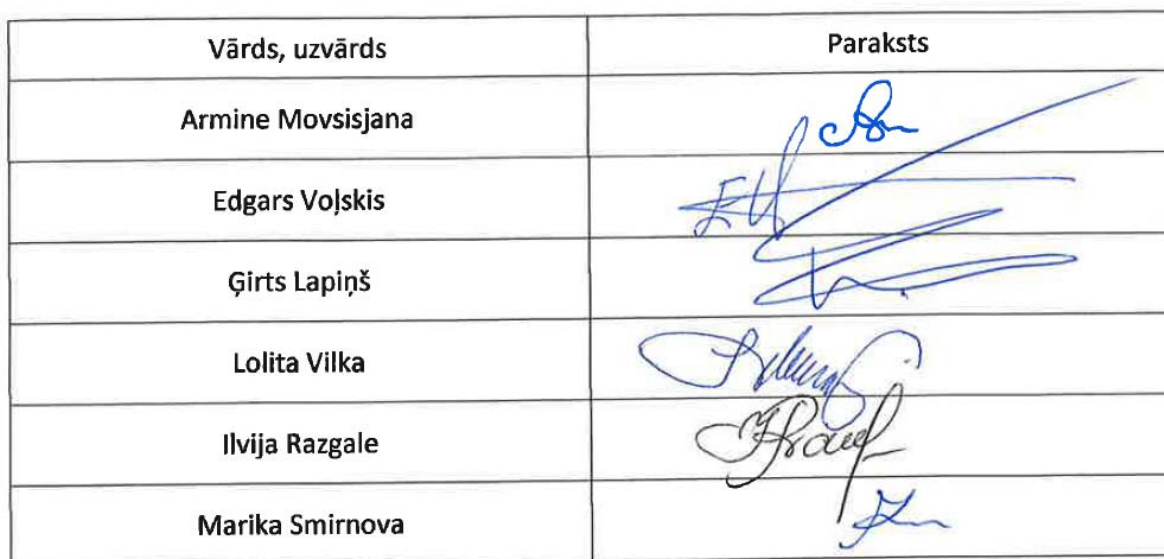 Vārds, uzvārds Paraksts
Armine Movsisjana
Edgars Voļskis
Ģirts Lapiņš
Lolita Vilka
Ilvija Razgale
Marika Smirnova